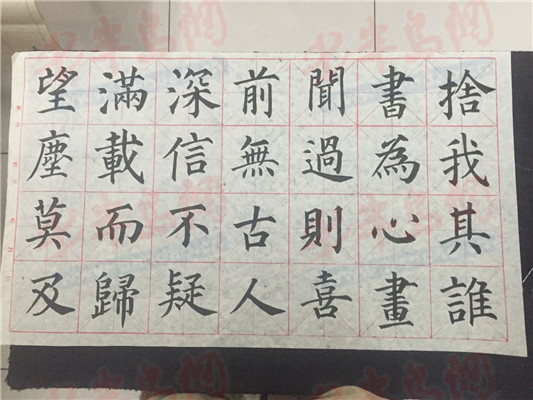 捨我其誰
書為心畫
聞過則喜
前無古人
深信不疑
滿載而歸
望塵莫及